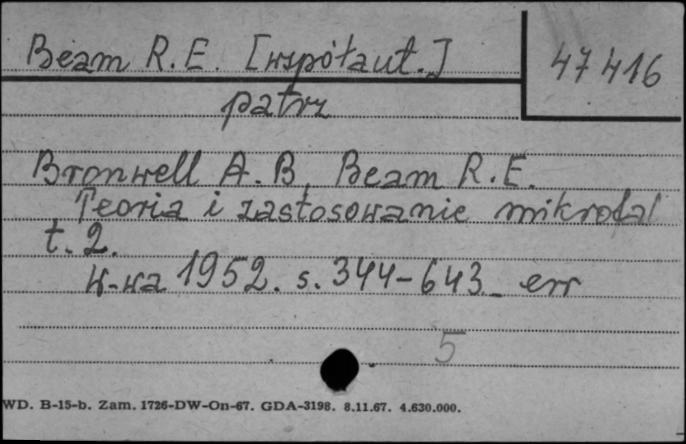 Beam R.E. [współaut.]
47416
patrz
Bronwell A.B, Beam R.E.
Teoria i zastosowanie mikrofal
t. 2.
W-wa 1952. s. 344-643 err
5
WD. B-15-b. Zam. 1726-DW-On-67. GDA-3198. 8.11.67. 4.630.000.